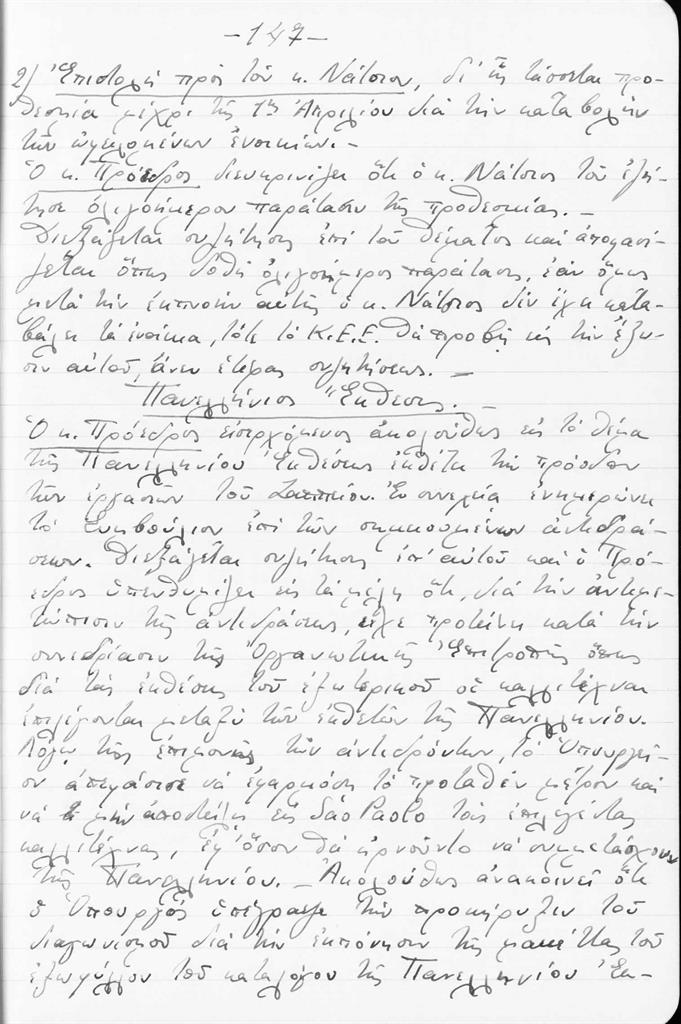 -147-
2) Ἐπιστολή πρός τόν κ. Νάτσιον, δι' ἧς τάσσεται προ-
θεσμία μέχρι τῆς 1ης Ἀπριλίου διά τήν καταβολήν
τῶν ὠφειλομένων ἐνοικίων.-
Ὁ κ. Πρόεδρος διευκρινίζει ὅτι ὁ κ. Νάτσιος τοῦ ἐζή-
τησε ὀλιγοήμερον παράτασιν τῆς προθεσμίας.-
Διεξάγεται συζήτησις ἐπί τοῦ θέματος καί ἀποφασί-
ζεται ὅπως δοθῆ ὀλιγοήμερος παράτασις, ἐάν ὅμως
μετά τήν ἐκπνοήν αὐτῆς ὁ κ. Νάτσιος δέν ἔχει κατα-
βάλει τά ἐνοίκια, τότε τό Κ.Ε.Ε. θά προβῆ εἰς τήν ἔξω-
σιν αὐτοῦ, ἄνευ ἑτέρας συζητήσεως.-
Πανελλήνιος Ἔκθεσις.-
Ὁ κ. Πρόεδρος εἰσερχόμενος ἀκολούθως εἰς τό θέμα
τῆς Πανελληνίου Ἐκθέσεως ἐκθέτει τήν πρόοδον
τῶν ἐργασιῶν τοῦ Ζαππείου. Ἐν συνεχεία ἐνημερώνει
τό Συμβούλιον ἐπί τῶν σημειουμένων ἀντιδρά-
σεων. Διεξάγεται συζήτησις ἐπ' αὐτοῦ καί ὁ Πρό-
εδρος ὑπενθυμίζει εἰς τά μέλη ὅτι, διά τήν ἀντιμε-
τώπισιν τῆς ἀντιδράσεως, εἶχε προτείνει κατά τήν
συνεδρίασιν τῆς Ὀργανωτικῆς Ἐπιτροπῆς ὅπως
διά τάς ἐκθέσεις τοῦ ἐξωτερικοῦ οἱ καλλιτέχναι
ἐπιλέγονται μεταξύ τῶν ἐκθετῶν τῆς Πανελληνίου.
Λόγω τῆς ἐπιμονῆς τῶν ἀντιδρώντων, τό Ὑπουργεῖ-
ον ἀπεφάσισε νά ἐφαρμόση τό προταθέν μέτρον καί
νά μήν ἀποστείλη εἰς São Paolo τούς ἐπιλεγέντας
καλλιτέχνας, ἐφ' ὅσον θά ἠρνοῦντο νά συμμετάσχουν
τῆς Πανελληνίου.- Ἀκολούθως ἀνακοινεῖ ὅτι
ὁ Ὑπουργός ὑπέγραψε τήν προκήρυξιν τοῦ
διαγωνισμοῦ διά τήν ἐκπόνησιν τῆς μακέττας τοῦ
ἐξωφύλλου τοῦ καταλόγου τῆς Πανελληνίου Ἐκ-